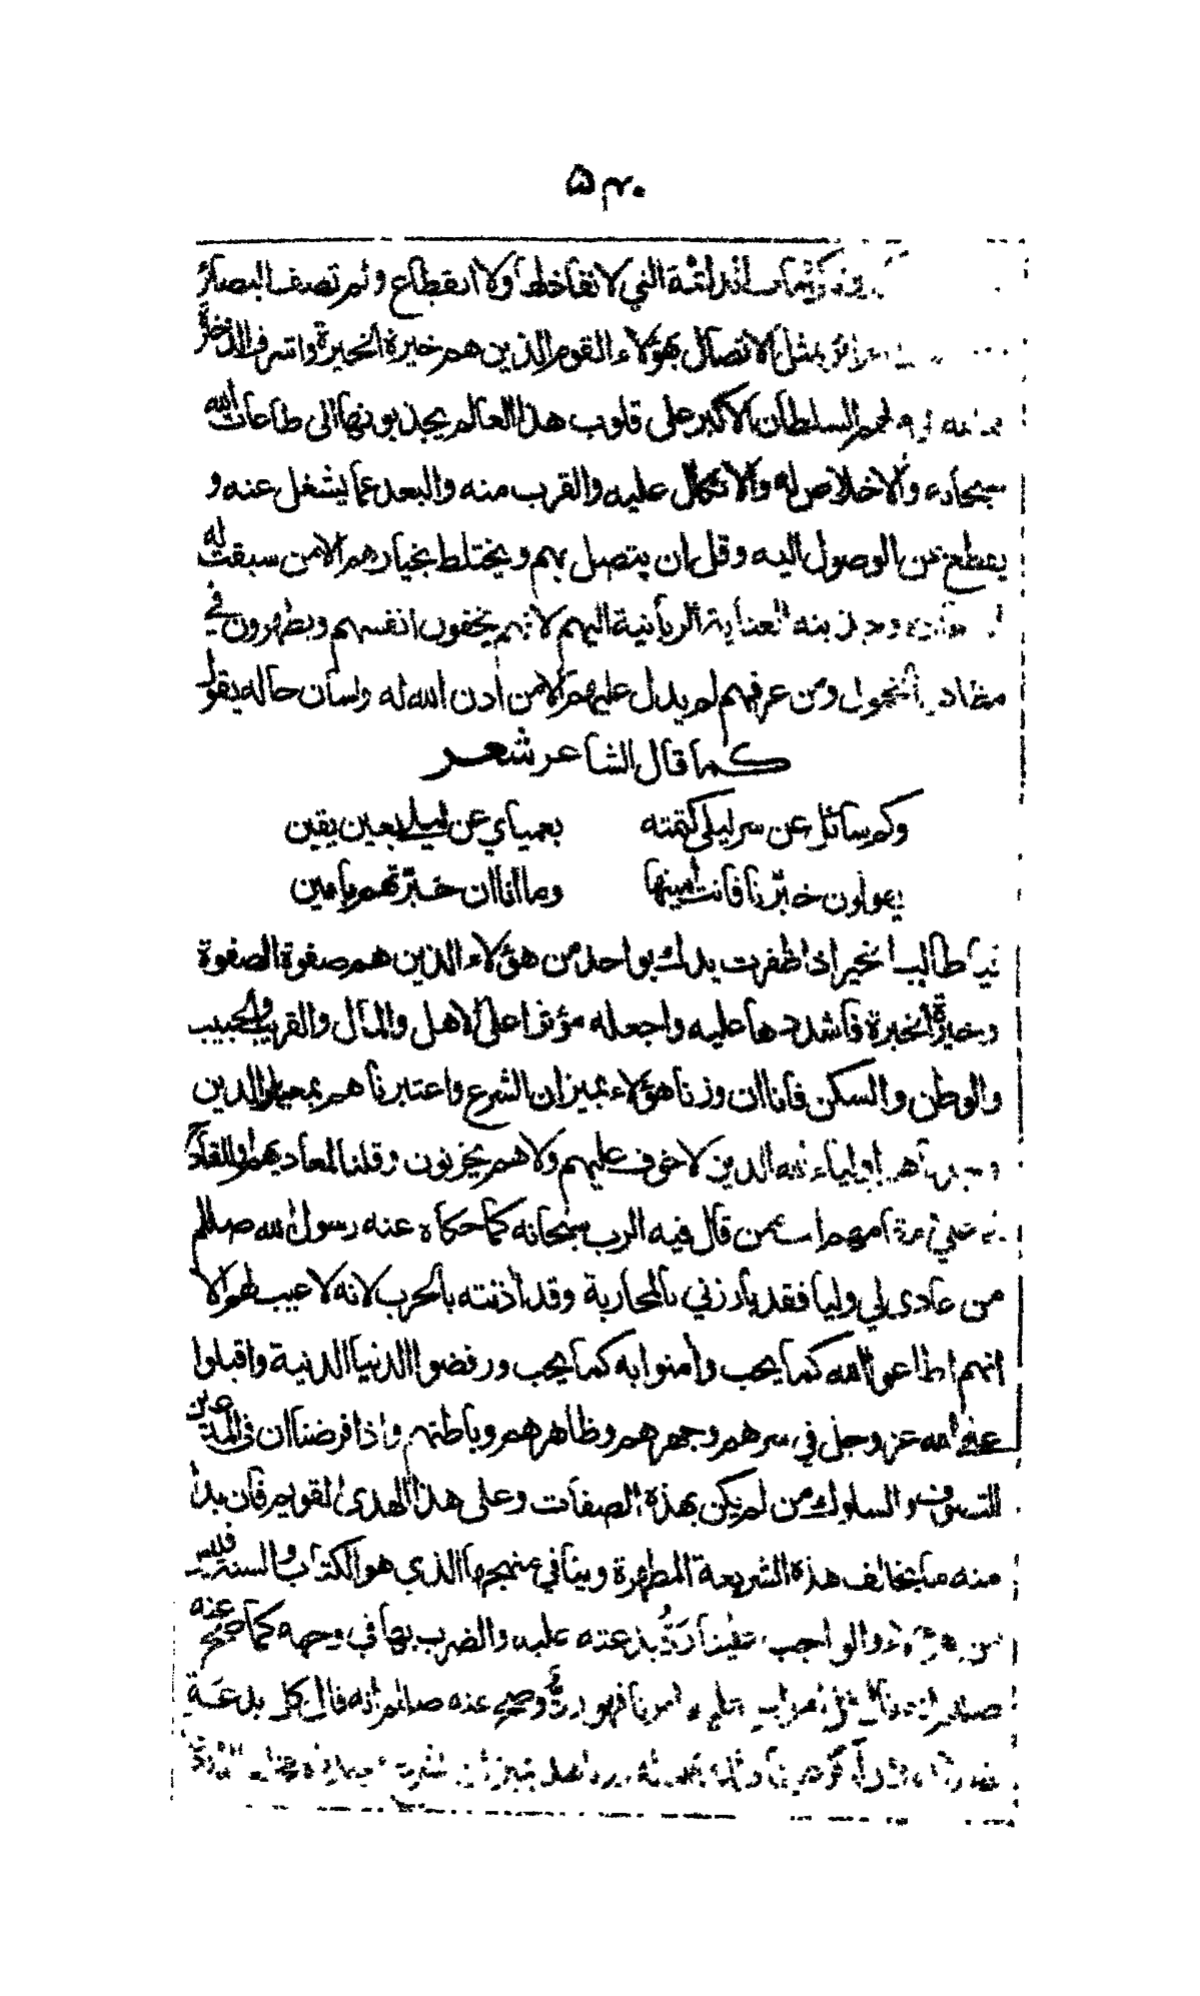 ٥٣٠
التي لا تقاخط ولا انقطاع ولم تصف البصائر
بمثل الاتصال بهؤلاء القوم الذين هم خيرة الخيرة واشرف الذخائر
لهم السلطان الاكبر على قلوب هذا العالم يجذبونها الى طاعات الله
سبحانه والاخلاص له والاتكال عليه والقرب منه والبعد عما يشغل عنه و
يقطع عن الوصول اليه وقل ان يتصل بهم ويختلط بخيارهم الا من سبقت له
وجذبته العناية الربانية اليهم لانهم يخفون انفسهم ويظهرون في
مظاهر الخمول ومن عرفهم لم يدل عليهم الا من أذن الله له ولسان حاله يقول
كما قال الشاعر شعر
وكم سائل عن سر ليلى كتمته بعمياي عن ليلى بعين يقين
يقولون خبرنا فانت امينها وما انا ان خبرتهم بامين
فيا طالب الخير اذا ظفرت يدك بواحد من هؤلاء الذين هم صفوة الصفوة
وخيرة الخيرة فاشددها عليه واجعله مؤثرا على الاهل والمال والقريب والحبيب
والوطن والسكن فانا ان وزنا هؤلاء بميزان الشرع واعتبرناهم بمعيار الدين
وجدناهم اولياء الله الذين لا خوف عليهم ولا هم يحزنون وقلنا لمعاديهم
ممن قال فيه الرب سبحانه كما حكاه عنه رسول الله صللم
من عادى لي وليا فقد بارزني بالمحاربة وقد اذنته بالحرب لانه لا عيب لهم الا
انهم اطاعوا الله كما يحب وآمنوا به كما يحب ورفضوا الدنيا الدنية واقبلوا
على الله عز وجل في سرهم وجهرهم وظاهرهم وباطنهم واذا فرضنا ان في المدعين
للتصوف والسلوك من لم يكن بهذه الصفات وعلى هذا الهدى القويم فان بدا
منه ما يخالف هذه الشريعة المطهرة وينافي منهجها الذي هو الكتاب والسنة فليس
من هؤلاء والواجب علينا رد بدعته عليه والضرب بها في وجهه كما صح عنه
صللم انه قال امرنا فهو رد وصح عنه صللم انه قال كل بدعة